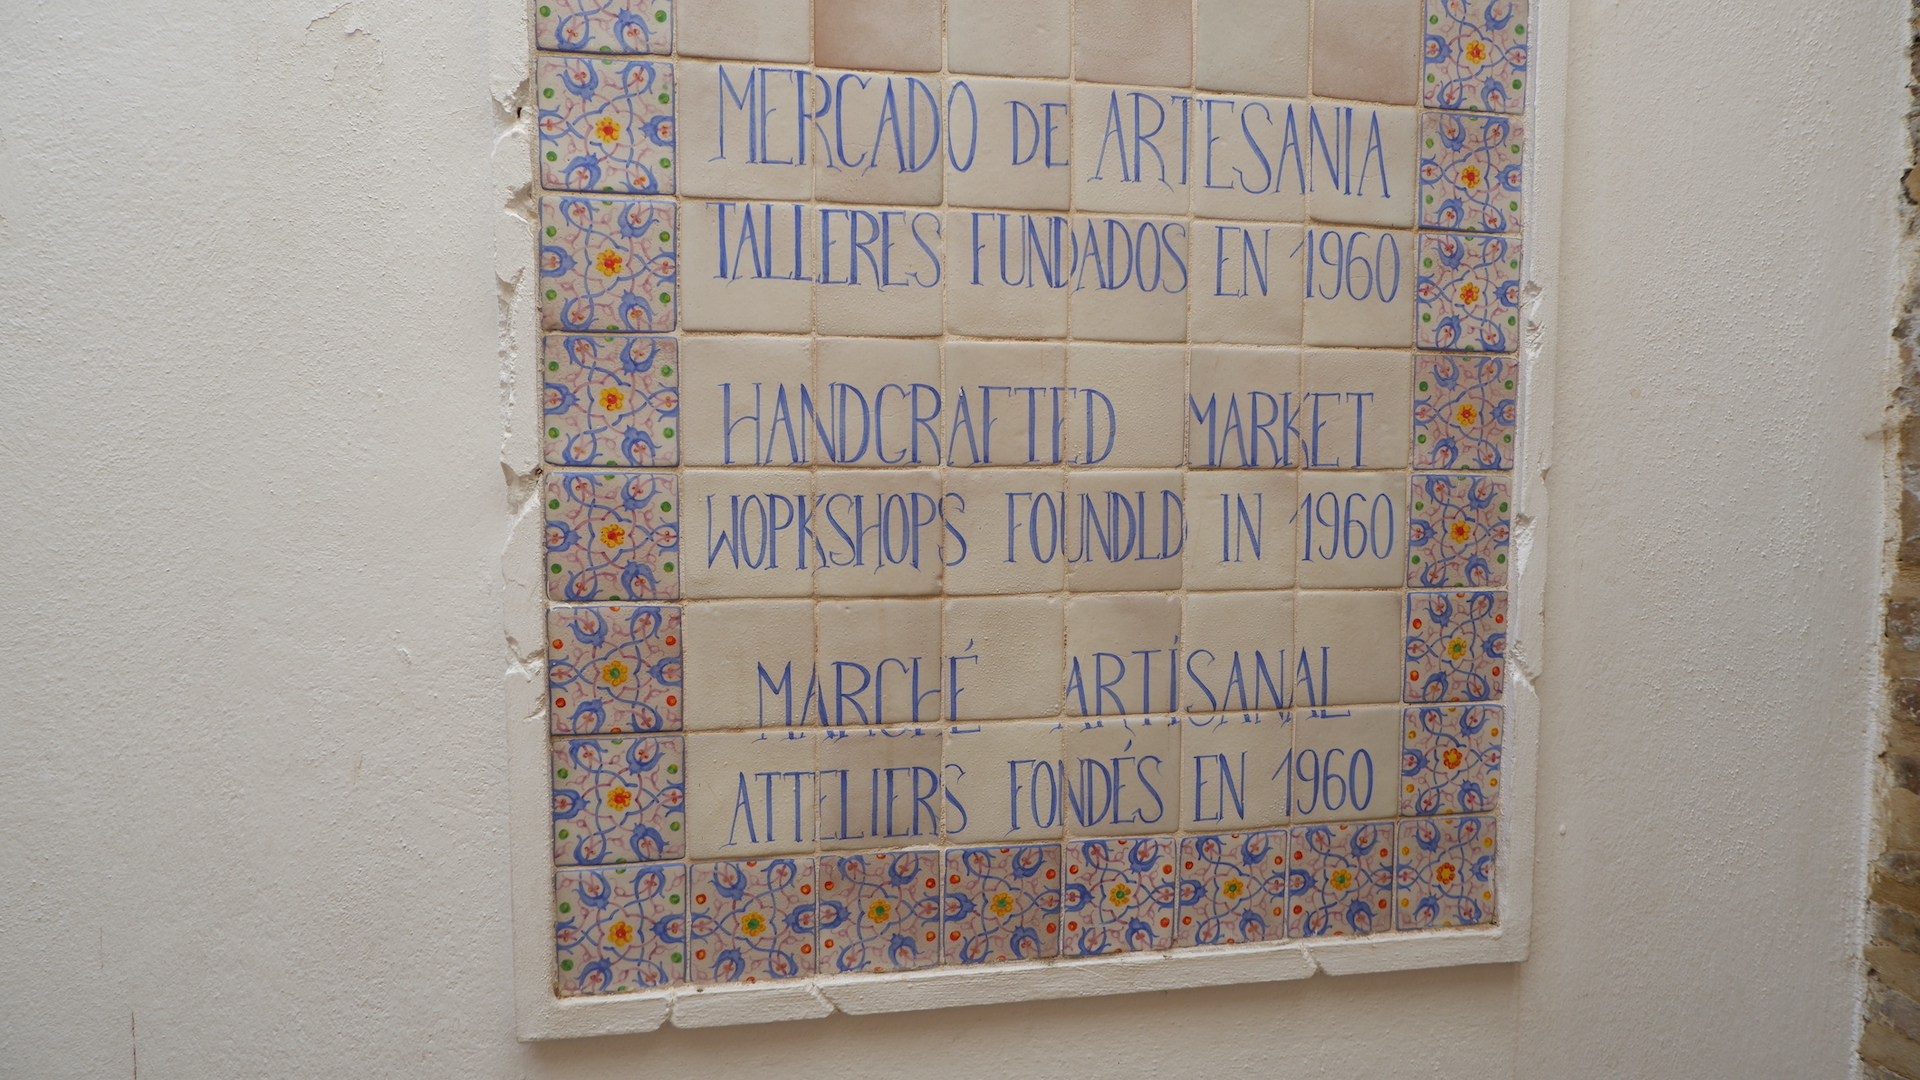 MERCADO DE ARTESANIA
TALLERES FUNDADOS EN 1960
HANDCRAFTED MARKET
WOPKSHOPS FOUNDLD IN 1960
MARCHÉ ARTÍSANAL
ATTELIERS FONDÉS EN 1960